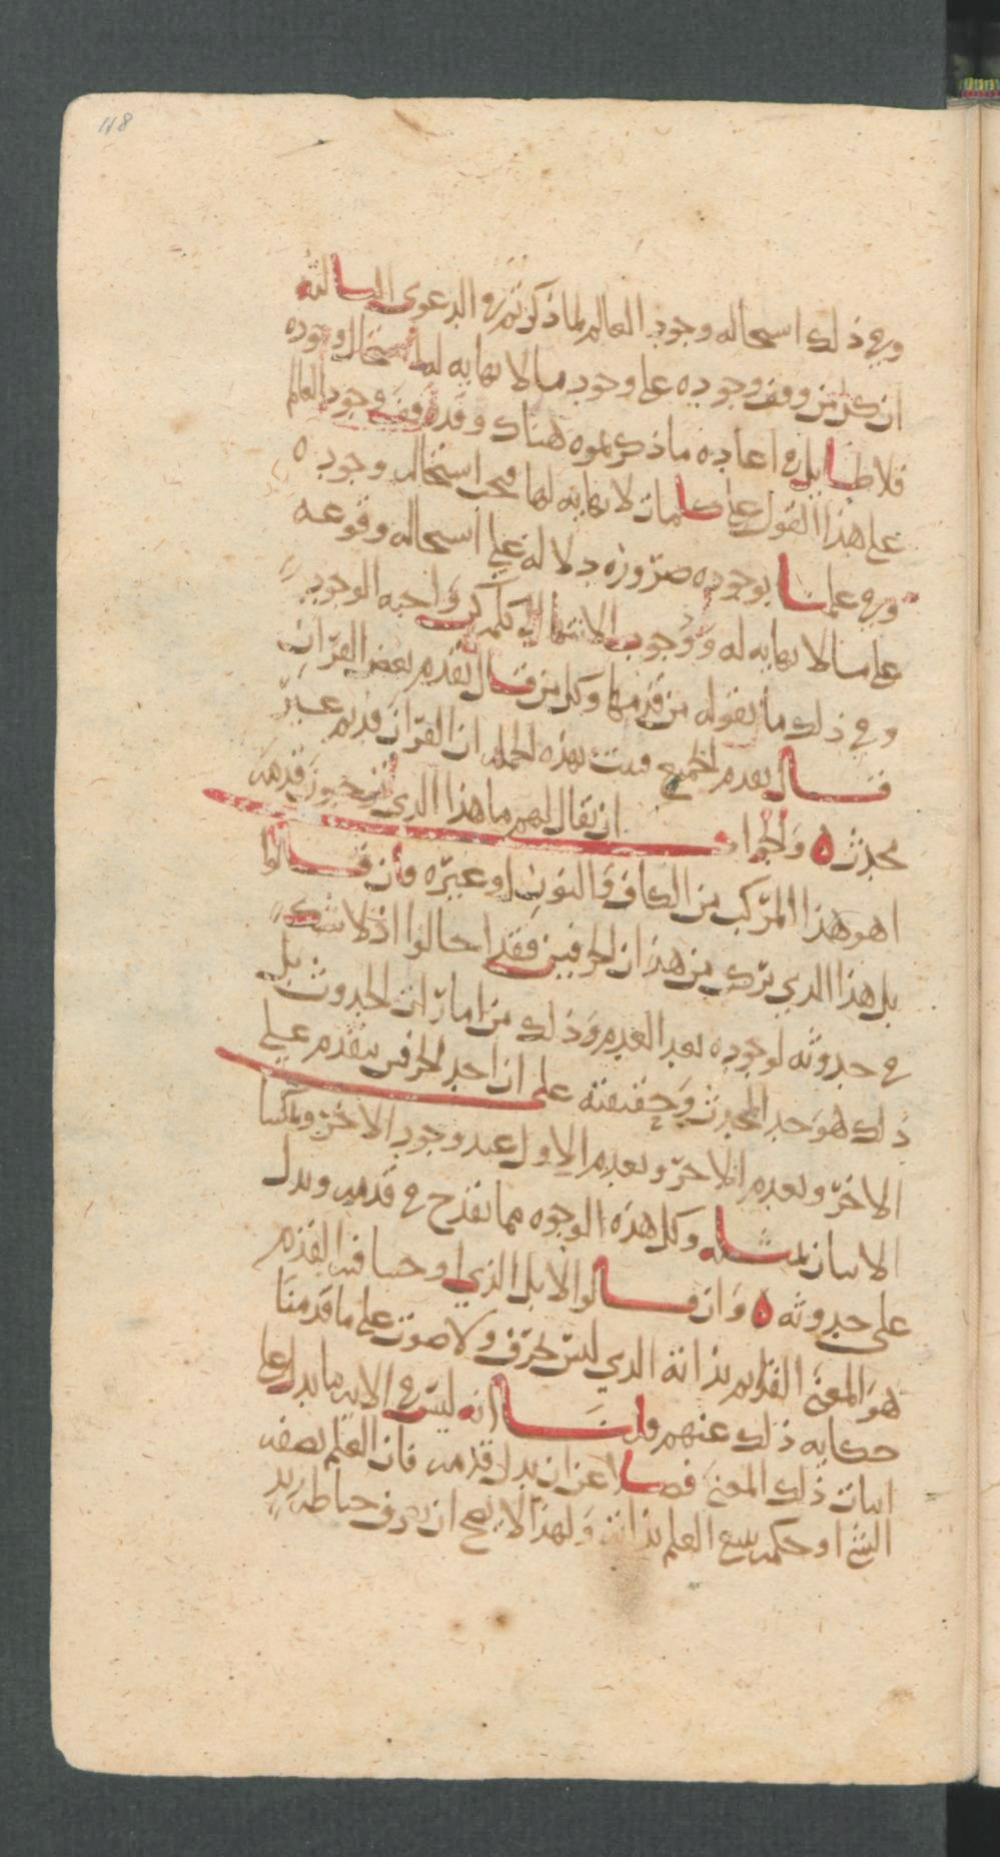 118
وفي ذلك استحاله وجود العالم لما ذكرتم في الدعوى الثالثه
ان كل من وقف وجوده على وجود ما لا نهايه له استحال وجوده
فلا طايل في اعاده ما ذكرتموه هناك وقد وقف وجود العالم
على هذا القول على كلمات لا نهايه لها فيجب استحاله وجوده
وفي علمنا بوجوده ضروره دلاله على استحاله وقوعه
على ما لا نهايه له ووجوب الانتها الى كلمه كن واجبه الوجود
وفي ذلك ما نقوله من قدمها وكل من قال بقدم بعض القران
قال بقدم الجميع فثبت بهذه الجمله ان القران قديم غير
محدث ه والجواب ان يقال لهم ما هذا الذي قدمه
اهو هذا المركب من الكاف والنون او غيره فان قالوا
بل هذا الذي تركب من هذان الحرفين فقد احالوا اذ لا شك
في حدوثه لوجوده بعد العدم وذلك من امارات الحدوث بل
ذلك هو حد المحدث وحقيقته على ان احد الحرفين يتقدم على
الاخر وبعدم الاخر وبعدم الاول عند وجود الاخر
الاتيان بمثله وكل هذه الوجوه مما تقدح في قدمه ويدل
على حدوثه ه وان قالوا لا بل الذي فيه القدم
هو المعنى القايم بذاته الذي ليس بحرف ولا صوت على ما قدمنا
حكايه ذلك عنهم قلنا انه ليس في الايه ما يدل على
اثبات ذلك المعنى فضلا عن ان يدل قدمه فان العلم بصفه
الشي او حكمه يتبع العلم بذاته ولهذا لا يصح ان يعرف زيد